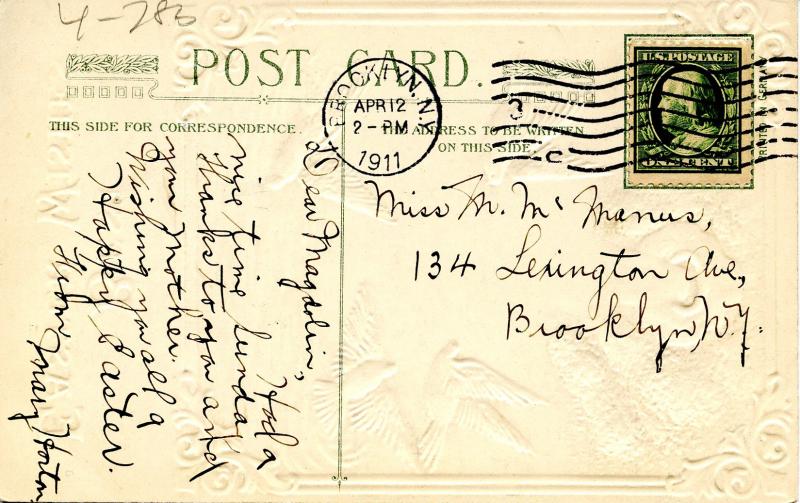 4-785
POST CARD.
THIS SIDE FOR CORRESPONDENCE.
ADDRESS TO BE WRITTEN
ON THIS SIDE.
BROOKLYN, N.Y.
APR 12
2-PM
1911
3
C
U.S. POSTAGE
ONE CENT
PRINTED IN GERMANY
Dear Magdolin,
Had a
nice time Sunday
thanks to you and
your mother.
Wishing you all a
Happy Easter.
From
Mary Horton
Miss M. McManus,
134 Lexington Ave,
Brooklyn, N.Y.